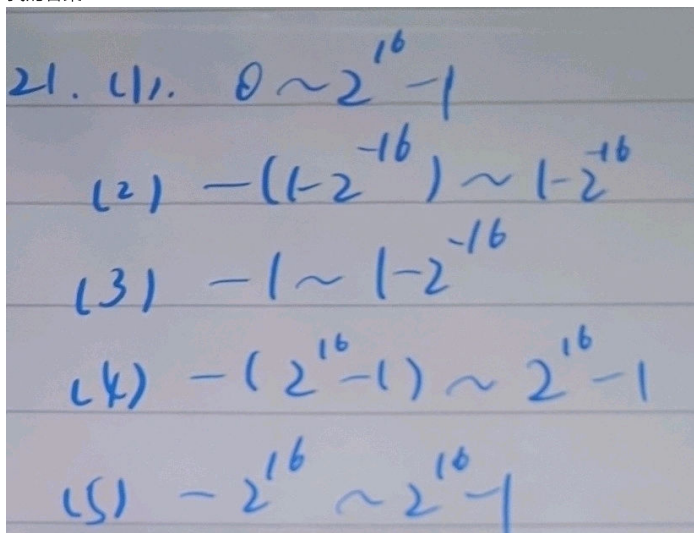 21. (1). 0 ~ 2^16 - 1
(2) -(1-2^-16) ~ 1-2^-16
(3) -1 ~ 1-2^-16
(4) -(2^16-1) ~ 2^16-1
(5) -2^16 ~ 2^16-1